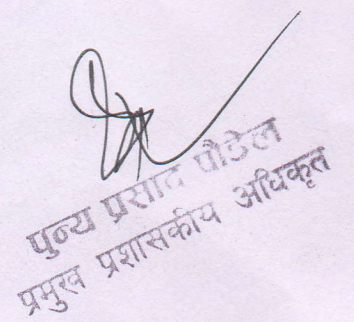 पुन्य प्रसाद पौडेल
प्रमुख प्रशासकीय अधिकृत